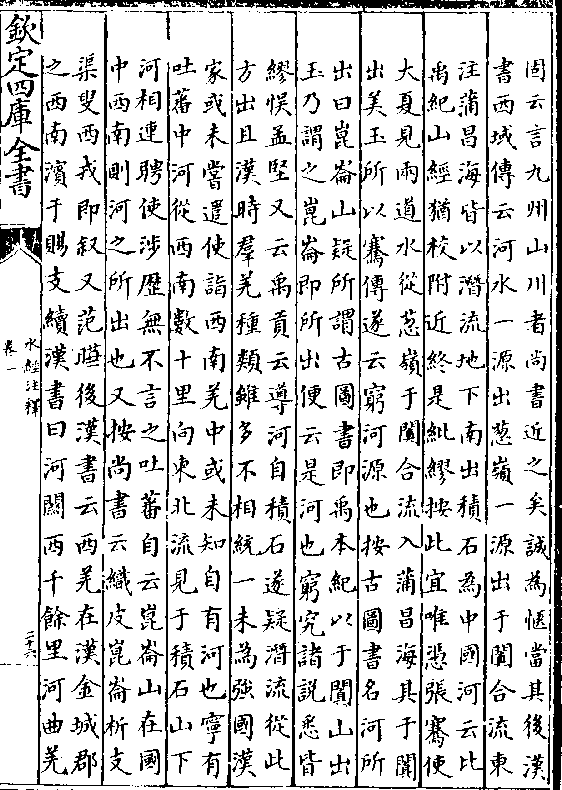 固云言九州山川者尚書近之矣誠為愜當其後漢
書西域傳云河水一源出葱嶺一源出于闐合流東
注蒲昌海皆以潛流地下南出積石為中國河云比
禹紀山經猶校附近終是紕繆按此宜唯憑張騫使
大夏見兩道水從葱嶺于闐合流入蒲昌海其于闐
出美玉所以騫傳遂云窮河源也按古圖書名河所
出曰崑崙山疑所謂古圖書即禹本紀以于闐山出
玉乃謂之崑崙即所出便云是河也窮究諸説悉皆
繆悮孟堅又云禹貢云導河自積石遂疑潛流從此
方出且漢時羣羌種類雖多不相統一未為強國漢
家或未嘗遣使詣西南羌中或未知自有河也寧有
吐蕃中河從西南數十里向東北流見于積石山下
河相連聘使涉歴無不言之吐蕃自云崑崙山在國
中西南則河之所出也又按尚書云織皮崑崙析支
渠叟西戎即叙又范曄後漢書云西羌在漢金城郡
之西南濱于賜支續漢書曰河關西千餘里河曲羌
欽定四庫全書
水經注釋
卷一
二十六